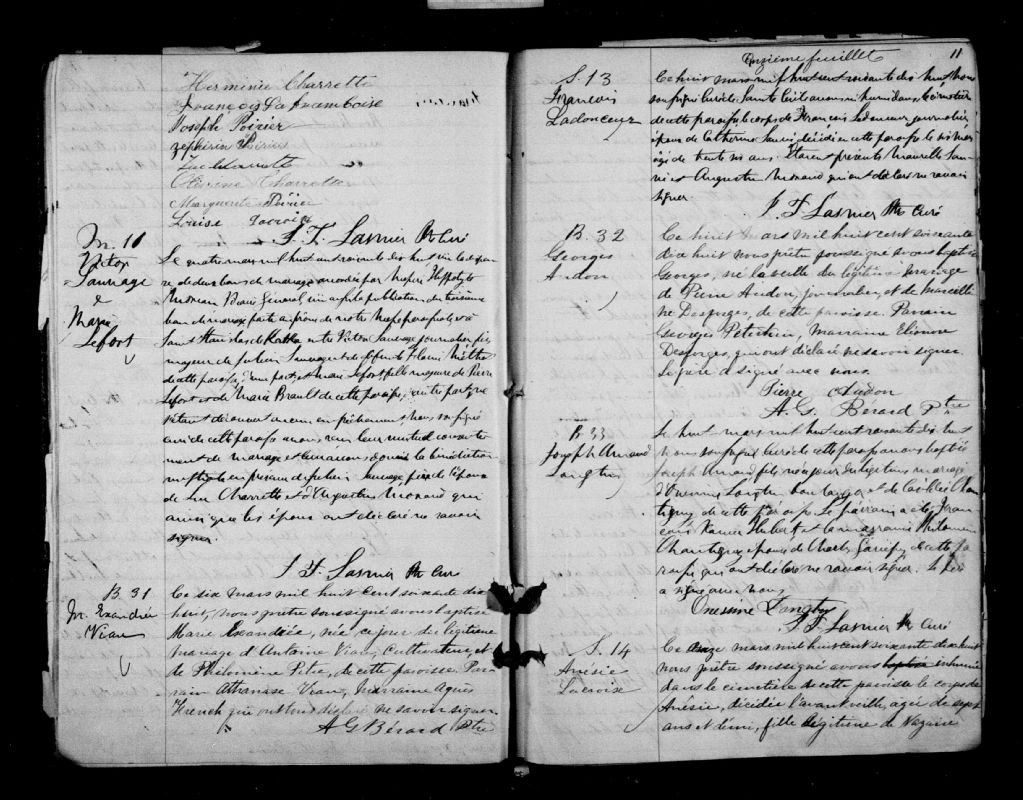 Herminie Charrette
François Laframboise
Joseph Poirier
Zephirin Poirier
Luc Charrette
Marguerite Poirier
Louise Lacroix
J. F. Lasnier Ptre Curé
M. 11
Victor
Sauvage
&
Marie
Lefort
Le quatre mars mil huit cent soixante dix huit vu la dispen
se de deux bans de mariage accordée par
Moreau Vicaire Général, vu aussi la publication du troisième
ban de mariage faite au prône de notre Messe paroissiale
Saint Stanislas de Kostka entre Victor Sauvage journalier fils
majeur de Julien Sauvage et de
de cette paroisse d'une part, et Marie Lefort, fille majeure de Pierre
Lefort et de Marie Brault de cette paroisse d'autre part, ne
s'étant découvert aucun empêchement, Nous soussigné
curé de cette paroisse avons reçu leur mutuel consente
ment de mariage et leur avons donné la bénédiction
nuptiale en présence de Julien Sauvage père de l'époux
de Luc Charrette et d'Augustin Monard qui
ainsi que les époux ont déclaré ne savoir
signer.
J. F. Lasnier Ptre Curé
B. 31
M. Exandrée
Viau
Ce six mars mil huit cent soixante dix
huit, nous prêtre soussigné avons baptisé
Marie Exandrée, née ce jour du légitime
mariage d'Antoine Viau, Cultivateur, et
de Philomène Pitre, de cette paroisse. Par
rain Athanase Viau, Marraine Agnès
French qui ont tous déclaré ne savoir signer.
A G Bérard Ptre
Onzième feuillet
11
S. 13
François
Ladouceur
Ce huit mars mil huit cent soixante dix huit Nous
soussigné Curé de Sainte Cécile avons inhumé dans le cimetière
de cette paroisse le corps de François Ladouceur journalier
époux de Catherine Sauvé décédé en cette paroisse le six mars
âgé de trente six ans. Étaient présents
et Augustin Monard qui ont déclaré ne savoir
signer.
J. F. Lasnier Ptre Curé
B. 32
Georges
Audon
Ce huit mars mil huit cent soixante
dix huit nous prêtre soussigné avons baptisé
Georges, né la veille du légitime mariage
de Pierre Audon, journalier, et de Marceli
ne Desforges, de cette paroisse. Parrain
Georges Petertin, Marraine Elionore
Desforges, qui ont déclaré ne savoir signer.
Le père a signé avec nous.
Pierre Audon
A. G. Bérard Ptre
B. 33
Joseph Arnaud
Langtin
Le huit mars mil huit cent soixante dix huit
Nous soussigné Curé de cette paroisse avons baptisé
Joseph Arnaud, fils né ce jour du légitime mariage
d'Onésime Langtin boulanger et de
tigny de cette paroisse. Le parrain a été Fran
çois Xavier Hubert et la marraine Philomène
Chantigny épouse de Charles Gariépy de cette pa
roisse qui ont déclaré ne savoir signer. Le père
a signé avec nous
Onesime Langtin
J. F. Lasnier Ptre Curé
S. 14
Anésie
Lacroise
Ce onze mars mil huit cent soixante dix huit
nous prêtre soussigné avons baptisé inhumé
dans le cimetière de cette paroisse le corps de
Anésie, décédée l'avant veille, agée de sept
ans et demi, fille légitime de Nazaire